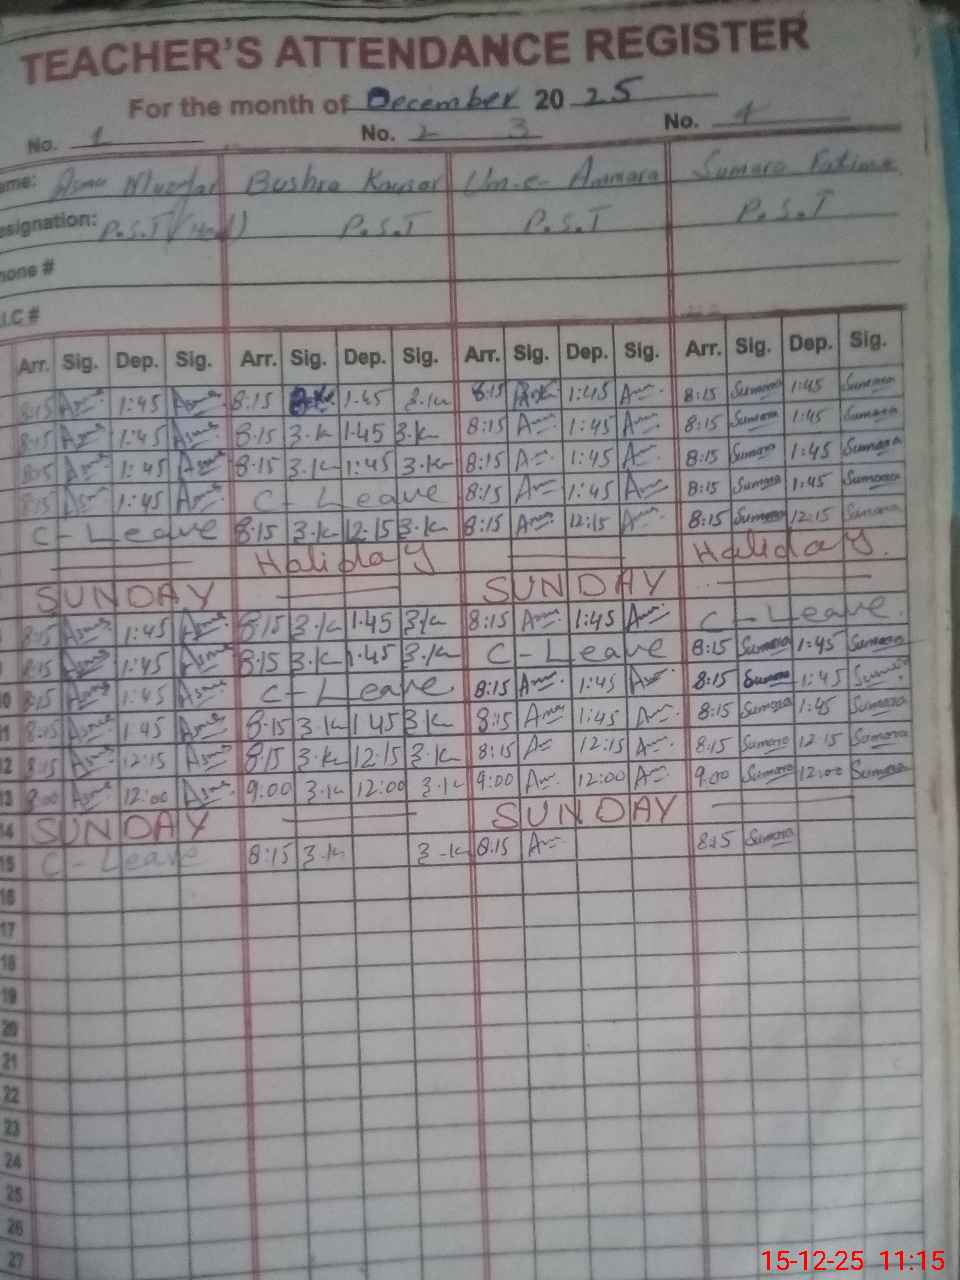 TEACHER'S ATTENDANCE REGISTER
For the month of December 2025
No. 1 No. 2 3 No. 4
ame: Asma Bushra Kausar Um-e- Ammara Sumara Fatima
esignation: P.S.T P.S.T P.S.T P.S.T
hone #
I.C #
Arr. Sig. Dep. Sig. Arr. Sig. Dep. Sig. Arr. Sig. Dep. Sig. Arr. Sig. Dep. Sig.
8:15 Asma 1:45 Asma 8:15 1.45 3.k 8:15 1:45 Am 8:15 Sumara 1:45 Sumara
8:15 Asma 1:45 Asma 8:15 3.k 1.45 3.k 8:15 Am 1:45 Am 8:15 Sumara 1:45 Sumara
8:15 Asma 1:45 Asma 8.15 3.k 1:45 3.k 8:15 Am 1:45 Am 8:15 Sumara 1:45 Sumara
8:15 Asma 1:45 Asma C - Leave 8:15 Am 1:45 Am 8:15 Sumara 1:45 Sumara
C - Leave 8:15 3.k 12:15 3.k 8:15 Am 12:15 Am 8:15 Sumara 12:15 Sumara
Holiday Holiday.
SUNDAY SUNDAY
8:15 Asma 1:45 Asma 8:15 3.k 1.45 3.k 8:15 Am 1:45 Am C - Leave.
9 8:15 Asma 1:45 Asma 8:15 3.k 1.45 3.k C - Leave 8:15 Sumara 1:45 Sumara
10 8:15 Asma 1:45 Asma C - Leave. 8:15 Am 1:45 Am 8:15 Sumara 1:45 Sumara
11 8:15 Asma 1:45 Asma 8:15 3.k 1.45 3.k 8:15 Am 1:45 Am 8:15 Sumara 1:45 Sumara
12 8:15 Asma 12:15 Asma 8:15 3.k 12:15 3.k 8:15 Am 12:15 Am 8:15 Sumara 12:15 Sumara
13 9:00 Asma 12:00 Asma 9:00 3.k 12:00 3.k 9:00 Am 12:00 Am 9:00 Sumara 12:00 Sumara
14 SUNDAY SUNDAY
15 C - Leave 8:15 3.k 3.k 8:15 Am 8:15 Sumara
16
17
18
19
20
21
22
23
24
25
26
27
15-12-25 11:15